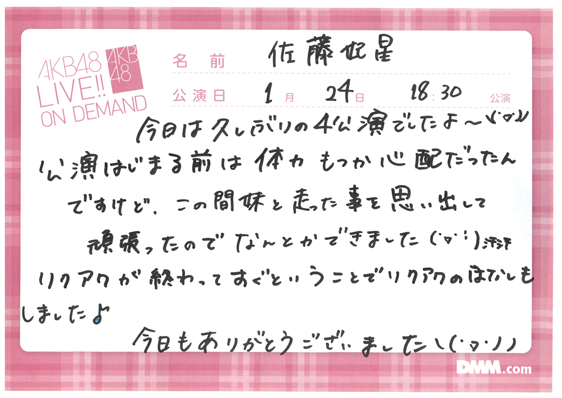 AKB48
LIVE!!
ON DEMAND
AKB
48
名前 佐藤妃星
公演日 1月 24日 18:30 公演
今日は久しぶりの4公演でしたよ〜\(˙▽˙)/
公演はじまる前は体力もつか心配だったん
ですけど、この間妹と走った事を思い出して
頑張ったのでなんとかできました(˙▽˙;)
リクアワが終わってすぐということでリクアワのはなしも
しました♪
今日もありがとうございました\(˙▽˙)/
DMM.com